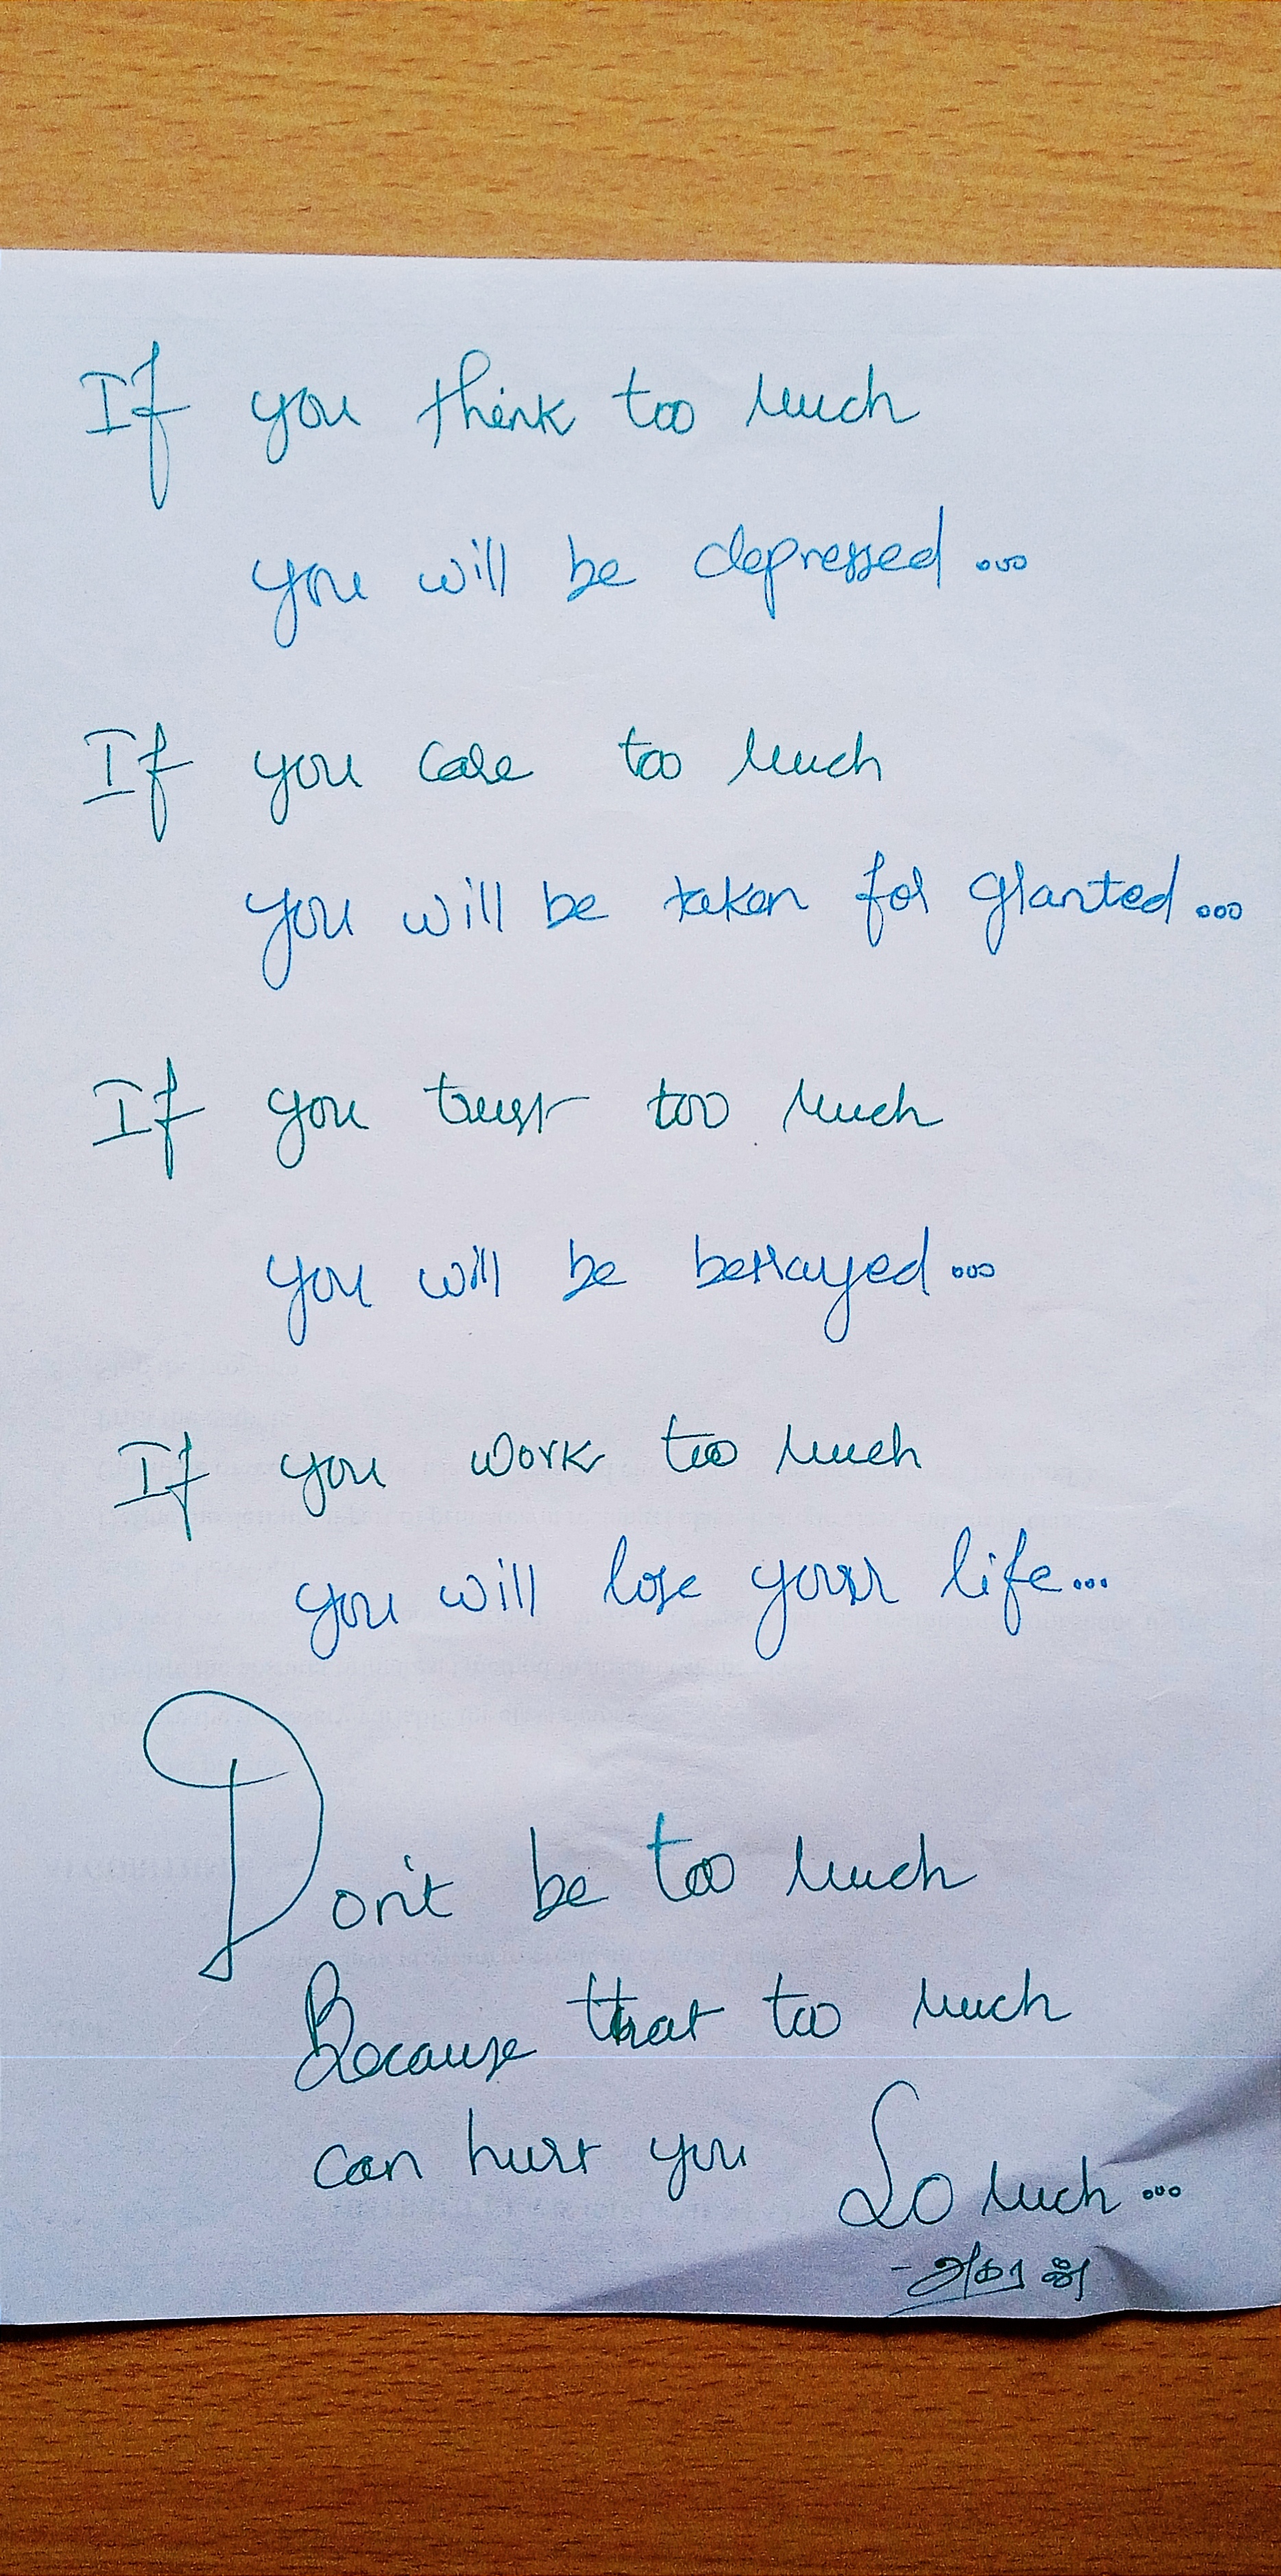 If you think too much
you will be depressed...
If you care too much
you will be taken for granted...
If you trust too much
you will be betrayed...
If you work too much
you will lose your life...
Don't be too much
Because that too much
can hurt you So much...